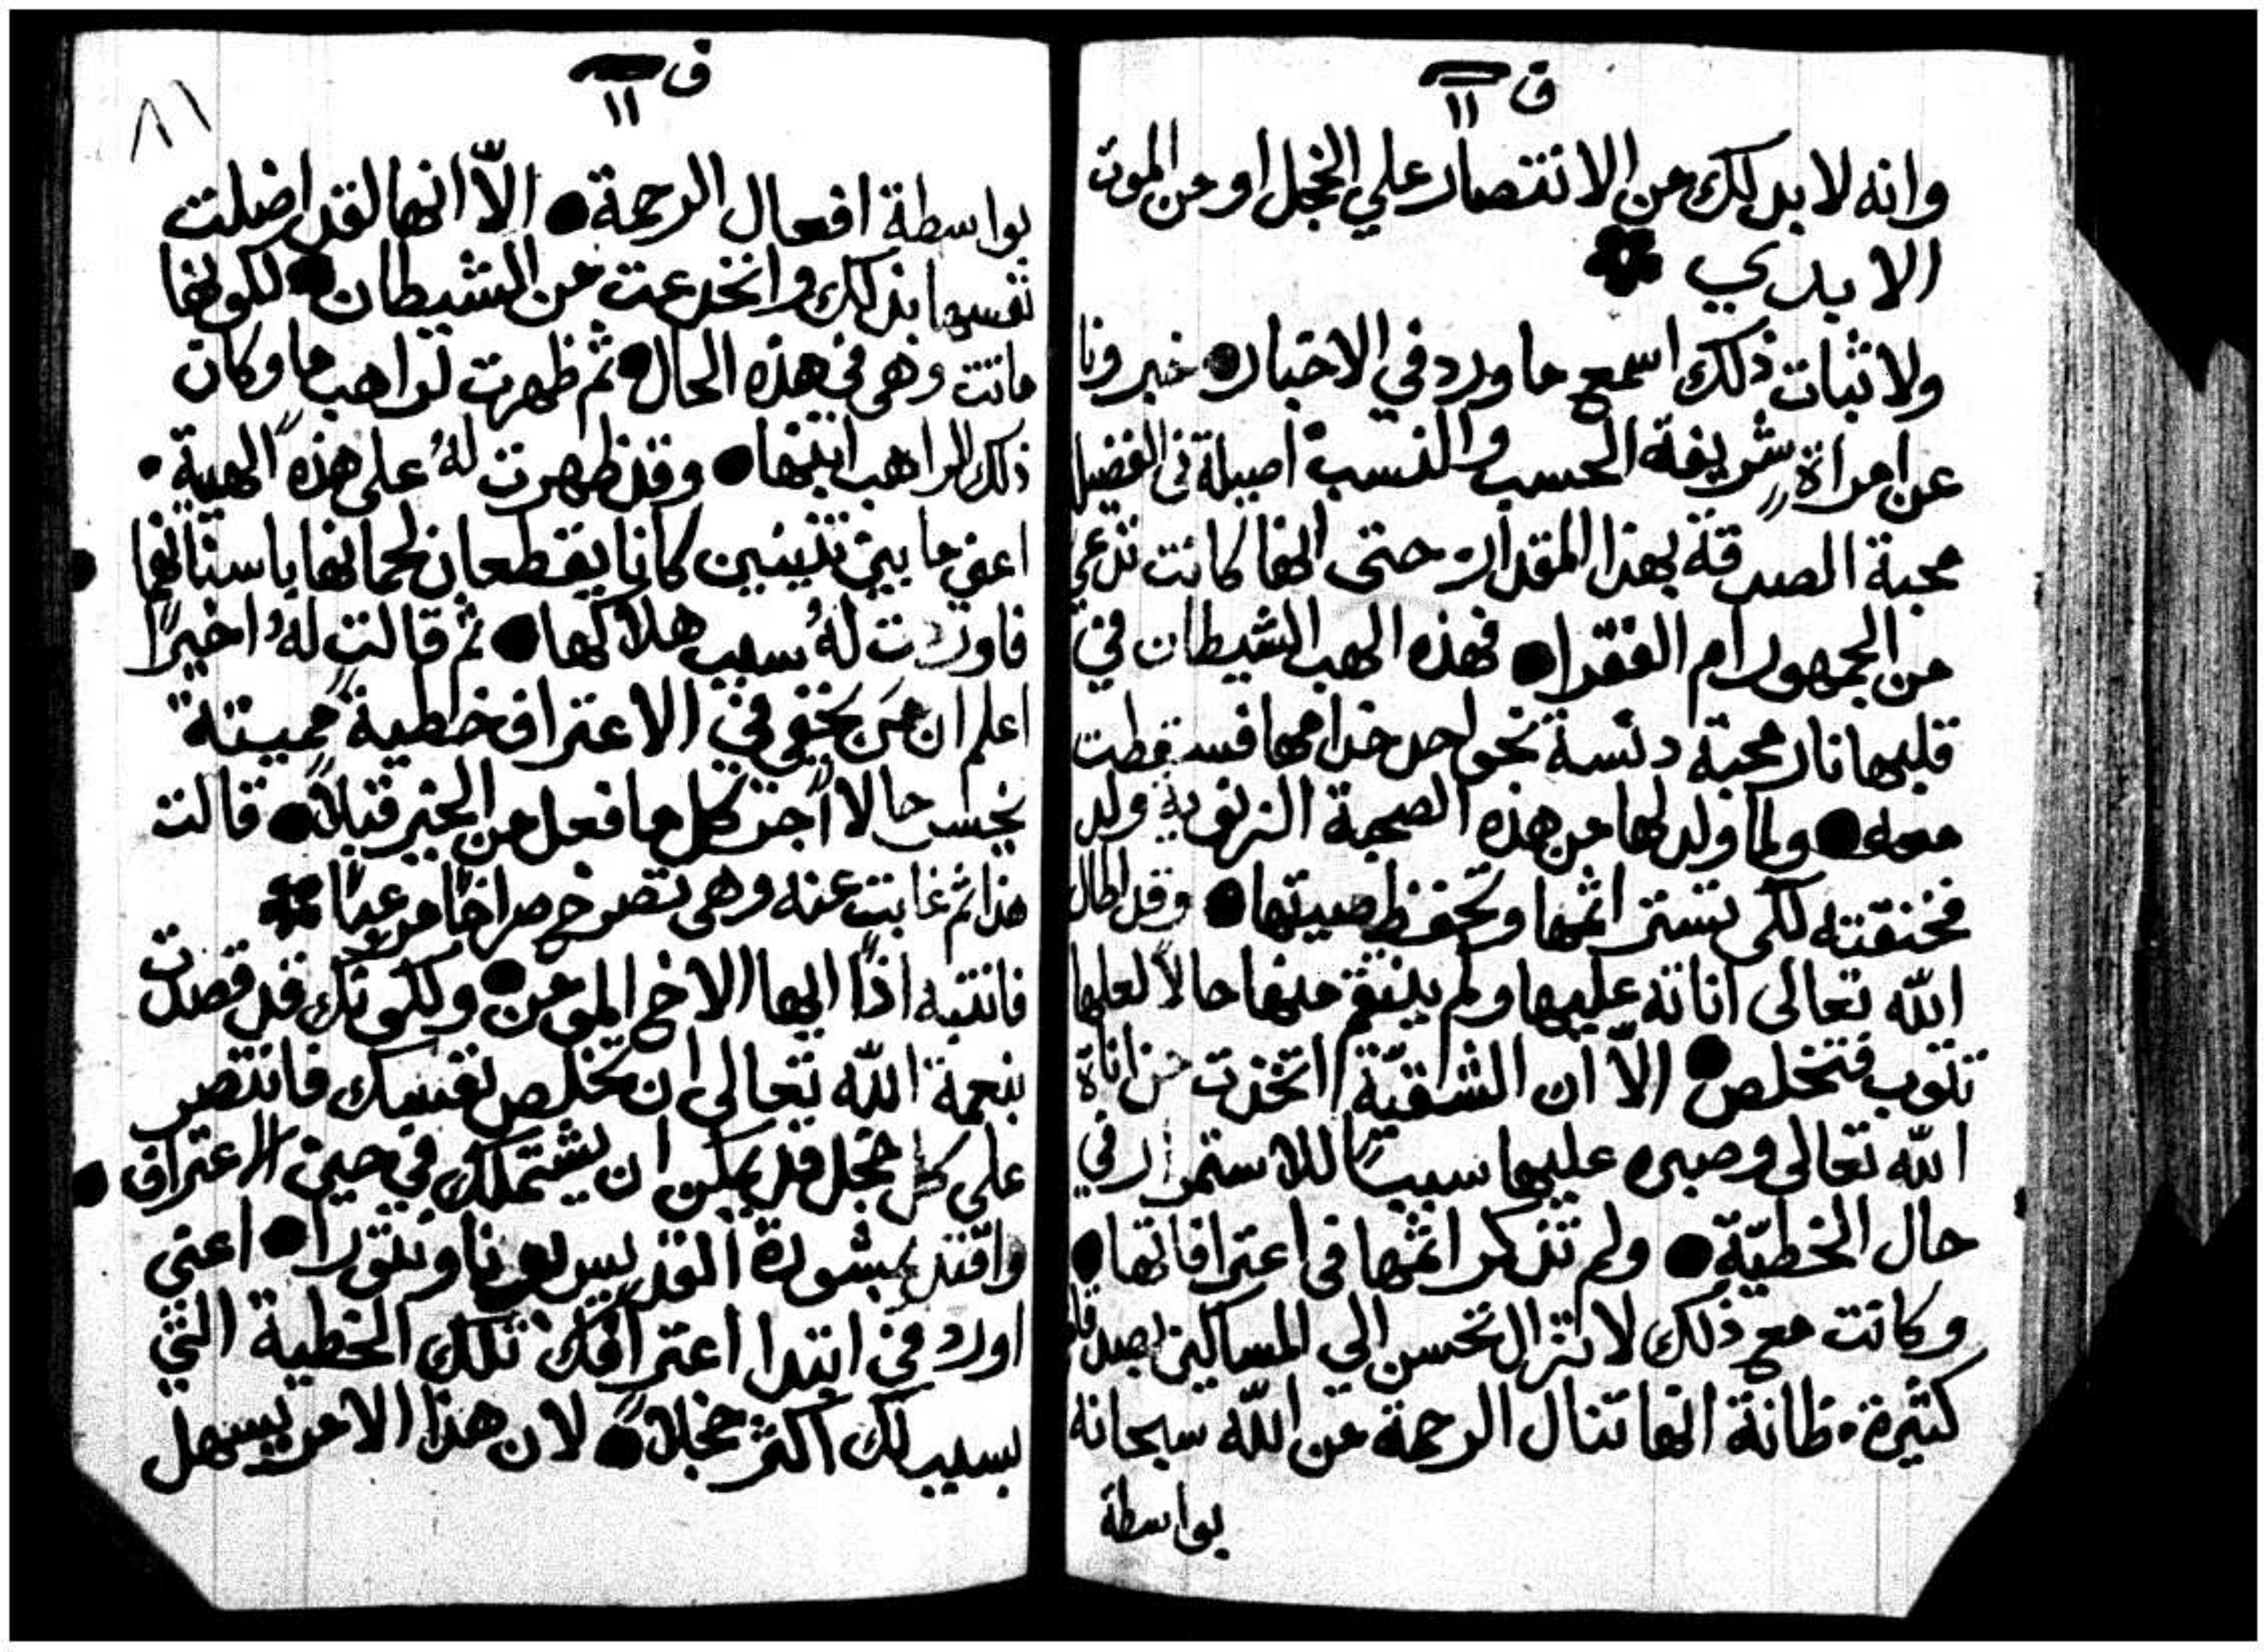 ق ١١
وانه لا بد لك من الانتصار علي الخجل او من الموت
الابدي
ولاثبات ذلك اسمع ما ورد في الاخبار خبرونا
عن امراة شريفة الحسب والنسب اصيلة في الفضيل
محبة الصدقة بهذا المقدار حتى انها كانت تدعي
من الجمهور ام الفقرا فهذه الهب الشيطان في
قلبها نار محبة دنسة نحو احد خدامها فسقطت
معه ولما ولد لها من هذه الصحبة الزنوية ولد
فخنقته لكي تستر اثمها وتحفظ صيتها وقد اطال
الله تعالى اناته عليها ولم ينتقم منها حالاً لعلها
تتوب فتخلص الاّ ان الشقيّة اتخذت من اناة
الله تعالى وصبره عليها سبباً للاستمرار في
حال الخطيّة ولم تذكر اثمها في اعترافاتها
وكانت مع ذلك لا تزال تحسن الي المساكين بصدقات
كثيرة ظانة انها تنال الرحمة من الله سبحانه
بواسطة
ق ١١
٨١
بواسطة افعال الرحمة الاّ انها لقد اضلت
نفسها بذلك وانخدعت من الشيطان لكونها
ماتت وهي في هذه الحال ثم ظهرت لراهب ما وكان
ذلك الراهب ابنها وقد ظهرت لهُ على هذه الهية
اعني ما بين تنينين كانا يقطعان لحمانها باسنانهما
فاوردت لهُ سبب هلاكها ثم قالت لهُ اخيراً
اعلم ان مَن يخفي في الاعتراف خطيةً مميتةً
يخسر حالا اجر كل ما فعل من الخير قبلاً قالت
هذا ثم غابت عنه وهي تصرخ صراخاً مرعباً
فانتبه اذاً ايها الاخ المومن ولكونك قد قصدت
بنعمة الله تعالى ان تخلص نفسك فانتصر
على كل خجل قد يمكن ان يشتملك في حين الاعتراف
واقتد بمشورة القديس بوناونتورا اعني
اورد في ابتدا اعترافك تلك الخطية التي
تسبب لك اكثر خجلاً لان هذا الامر يسهل